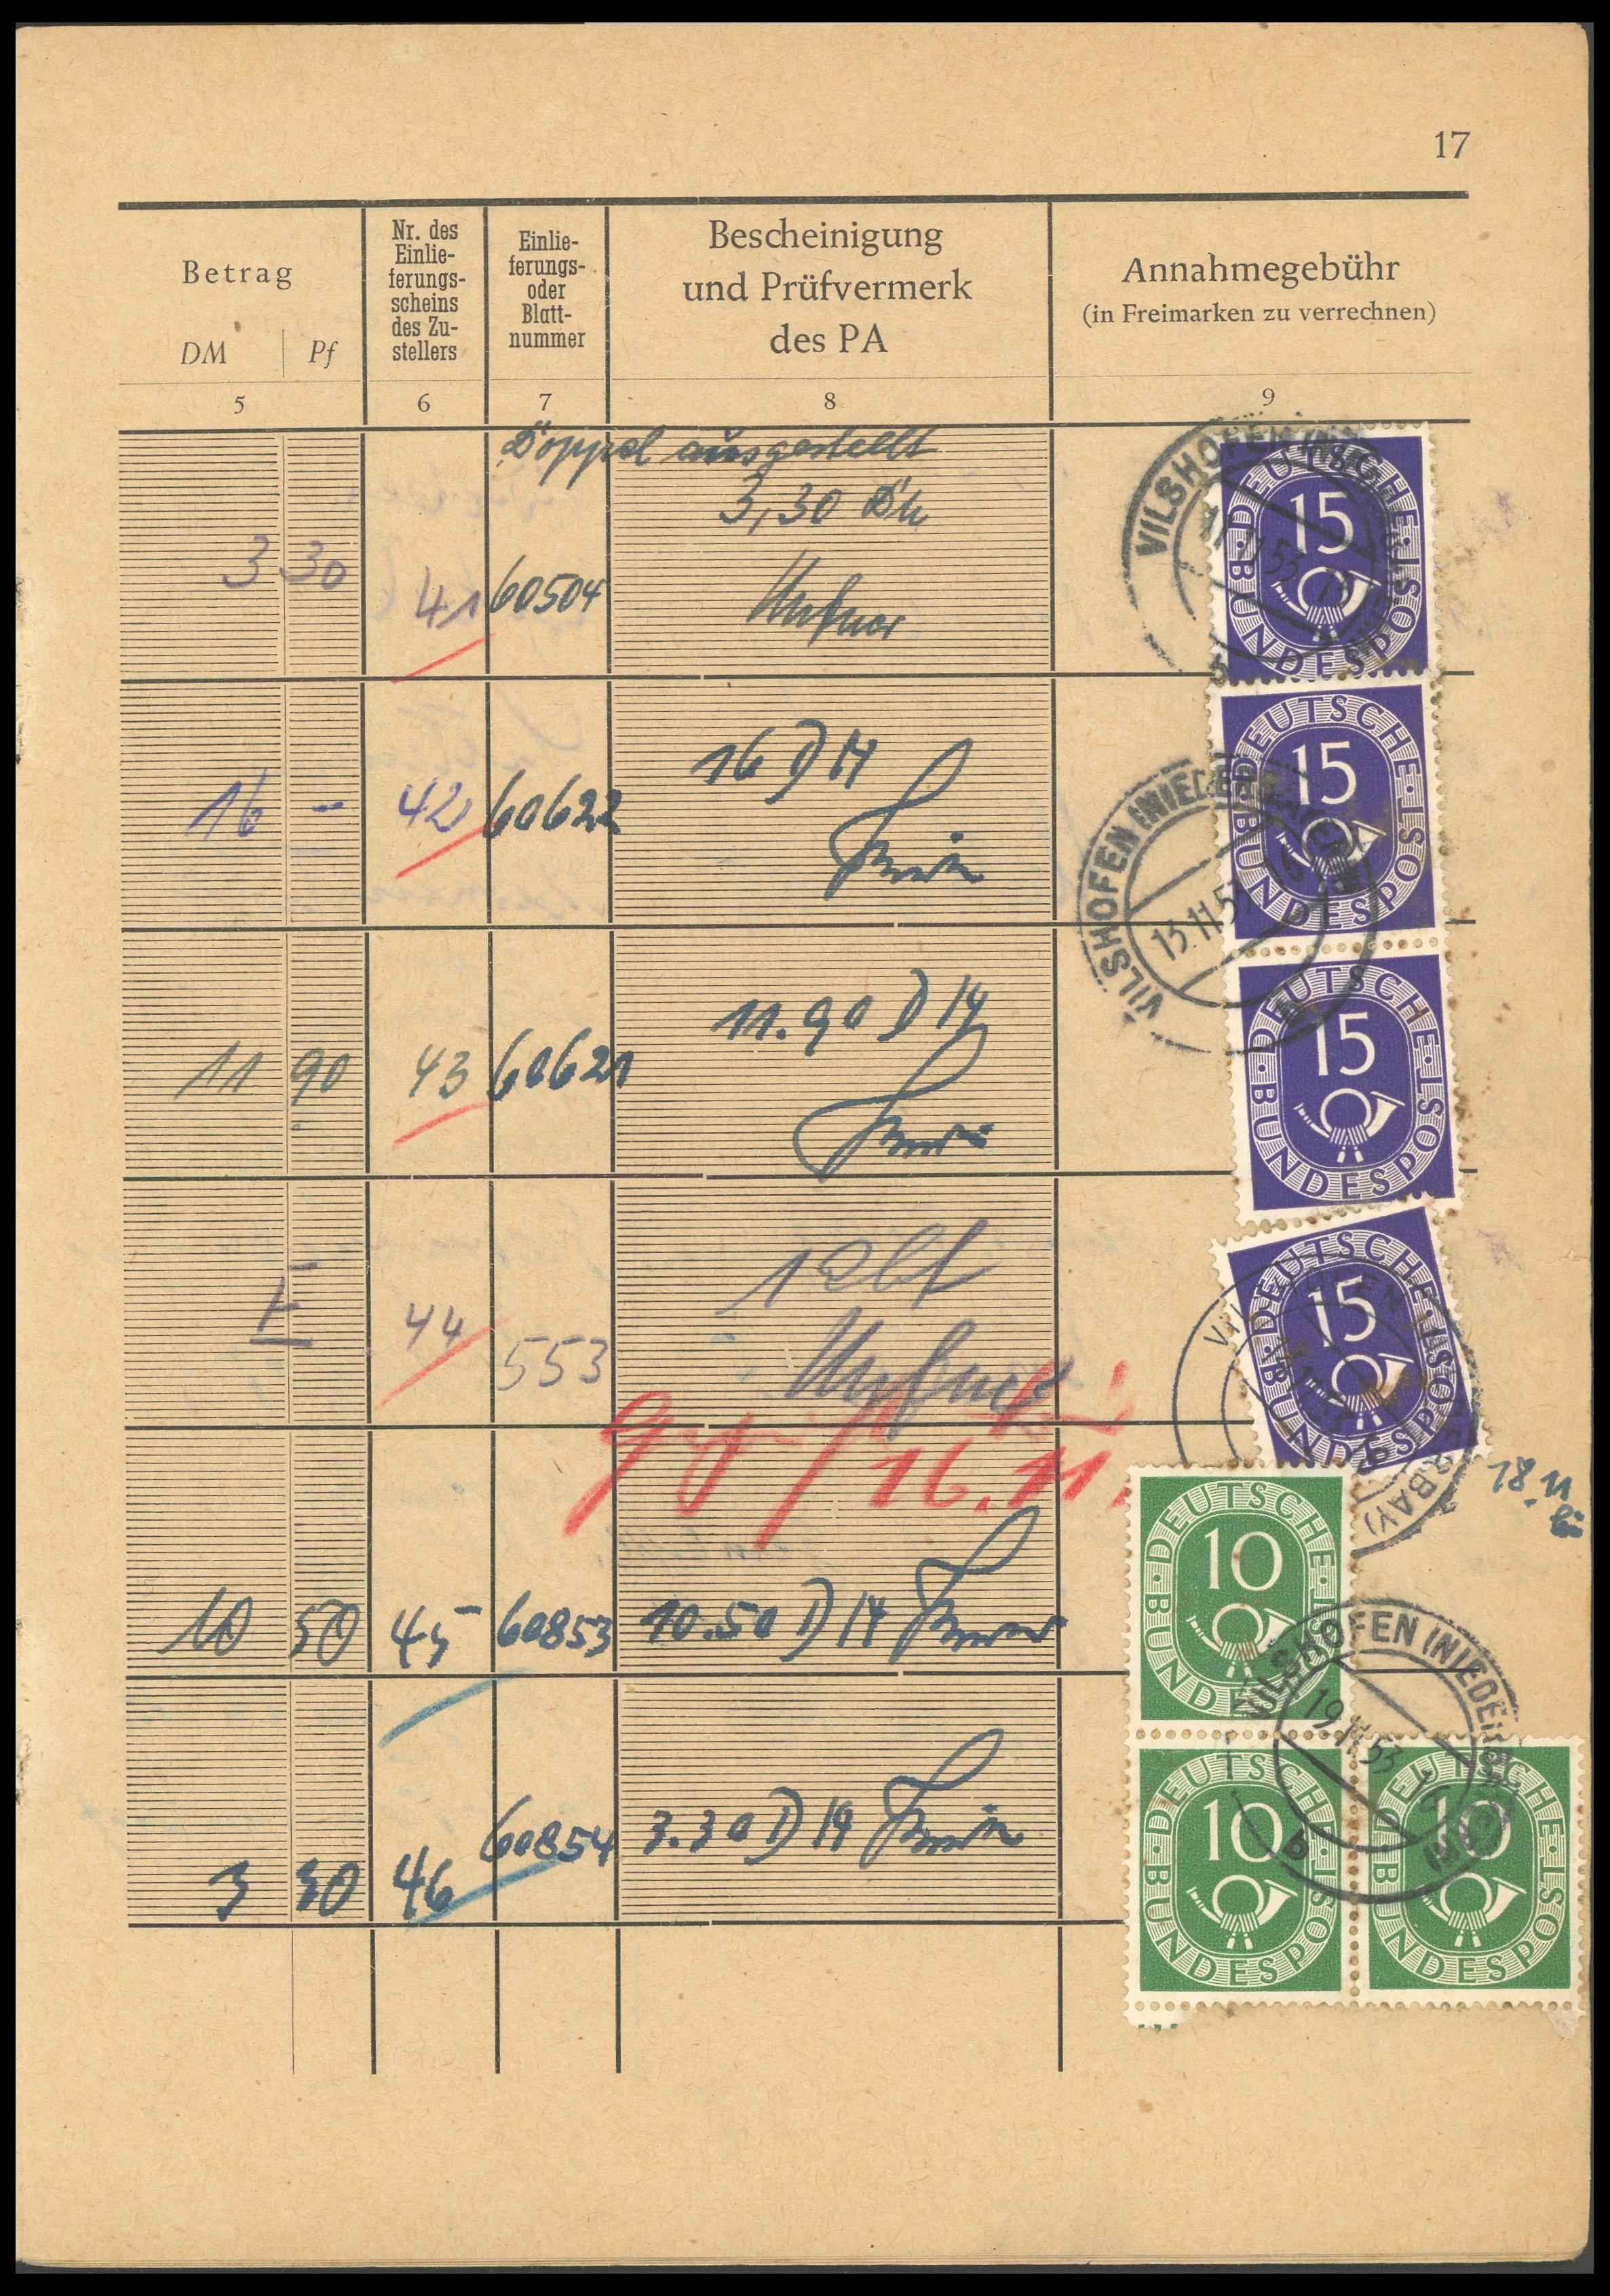 17
Betrag
DM Pf
Nr. des
Einlie-
ferungs-
scheins
des Zu-
stellers
Einlie-
ferungs-
oder
Blatt-
nummer
Bescheinigung
und Prüfvermerk
des PA
Annahmegebühr
(in Freimarken zu verrechnen)
5 6 7 8 9
Doppel ausgestellt
3,30
3 30 41 60504
16 DM
16 - 42 60622
11.90 DM
11 90 43 60621
E 44 553
16.11.
18.11
10 50 45 60853 10.50 DM
3 30 46 60854 3.30 DM
DEUTSCHE BUNDESPOST
15
VILSHOFEN (NIEDERBAY)
11.11.53
b
DEUTSCHE BUNDESPOST
15
VILSHOFEN (NIEDERBAY)
13.11.53
DEUTSCHE BUNDESPOST
15
DEUTSCHE BUNDESPOST
15
DEUTSCHE BUNDESPOST
10
VILSHOFEN (NIEDERBAY)
19.11.53 16
b
DEUTSCHE BUNDESPOST
10
DEUTSCHE BUNDESPOST
10